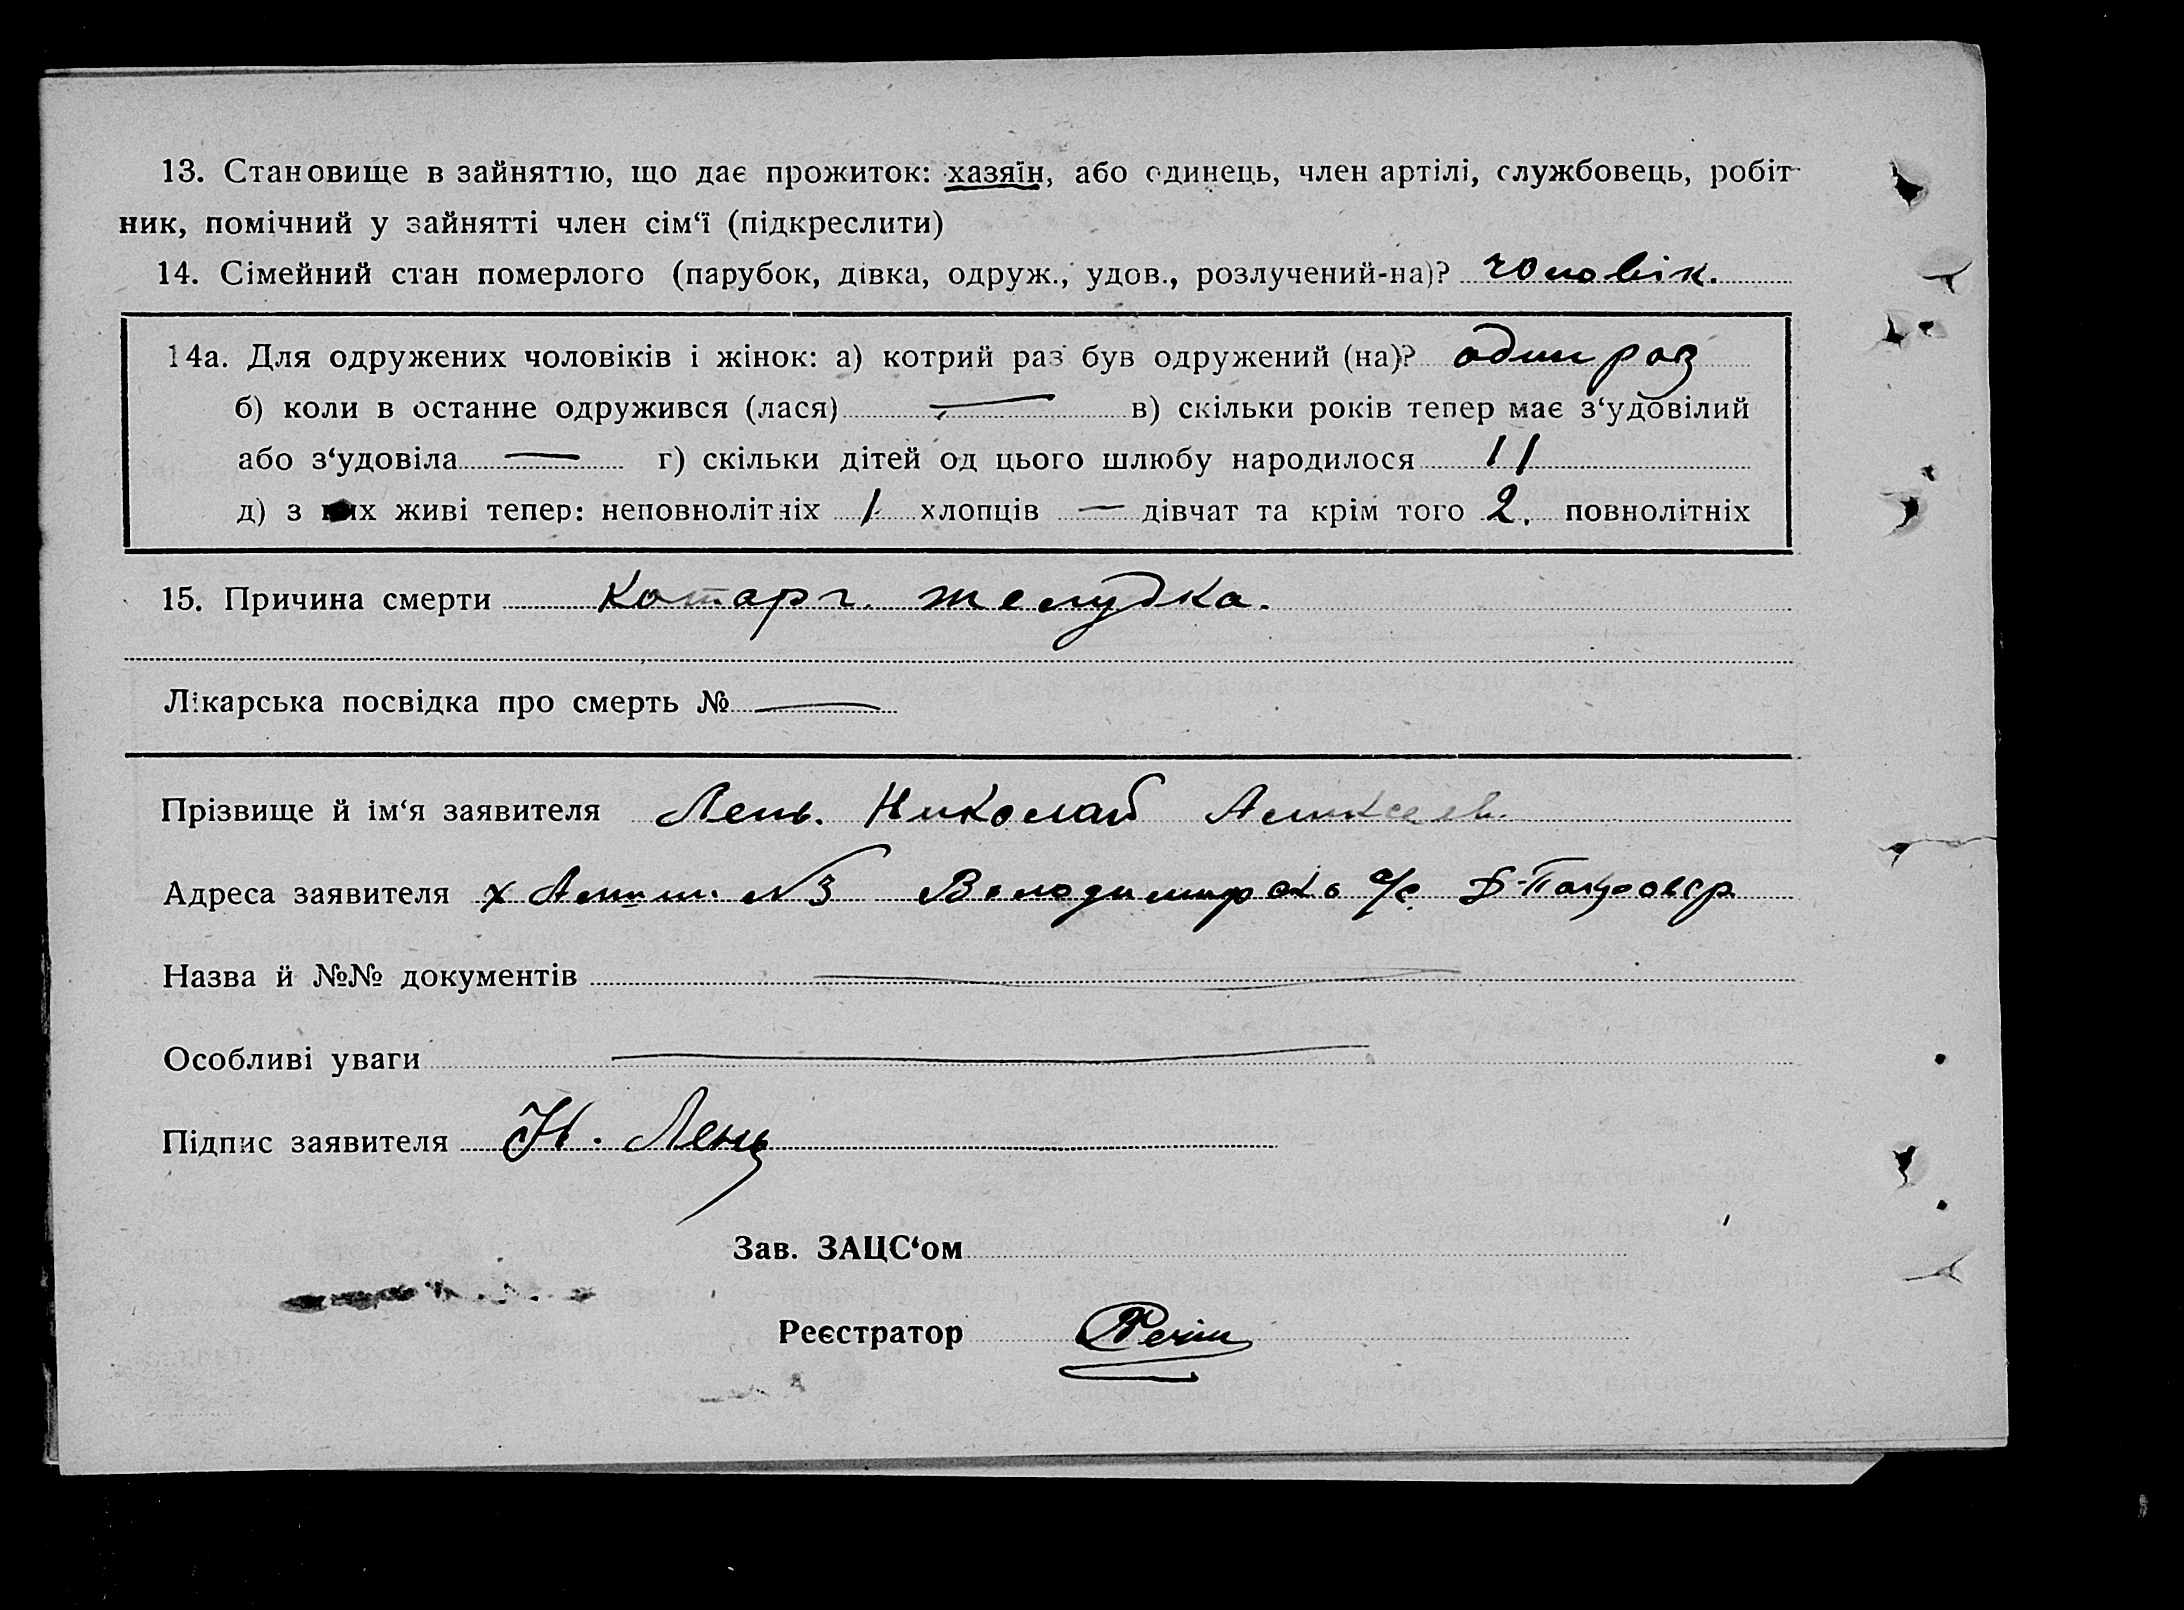 13. Становище в зайняттю, що дає прожиток: хазяїн, або одинець, член артілі, службовець, робіт-
ник, помічний у зайнятті член сім‘ї (підкреслити)
14. Сімейний стан померлого (парубок, дівка, одруж., удов., розлучений-на)? чоловік.
14а. Для одружених чоловіків і жінок: а) котрий раз був одружений (на)? один раз
б) коли в останне одружився (лася) — в) скільки років тепер має з‘удовілий
або з‘удовіла — г) скільки дітей од цього шлюбу народилося 11
д) з них живі тепер: неповнолітніх 1 хлопців — дівчат та крім того 2. повнолітніх
15. Причина смерти Катарг. желудка.
Лікарська посвідка про смерть № —
Прізвище й ім‘я заявителя Лень. Николай Аликсеев.
Адреса заявителя х №3 Володимирськ с/с.
Назва й №№ документів —
Особливі уваги —
Підпис заявителя Н. Лень
Зав. ЗАЦС‘ом
Реєстратор